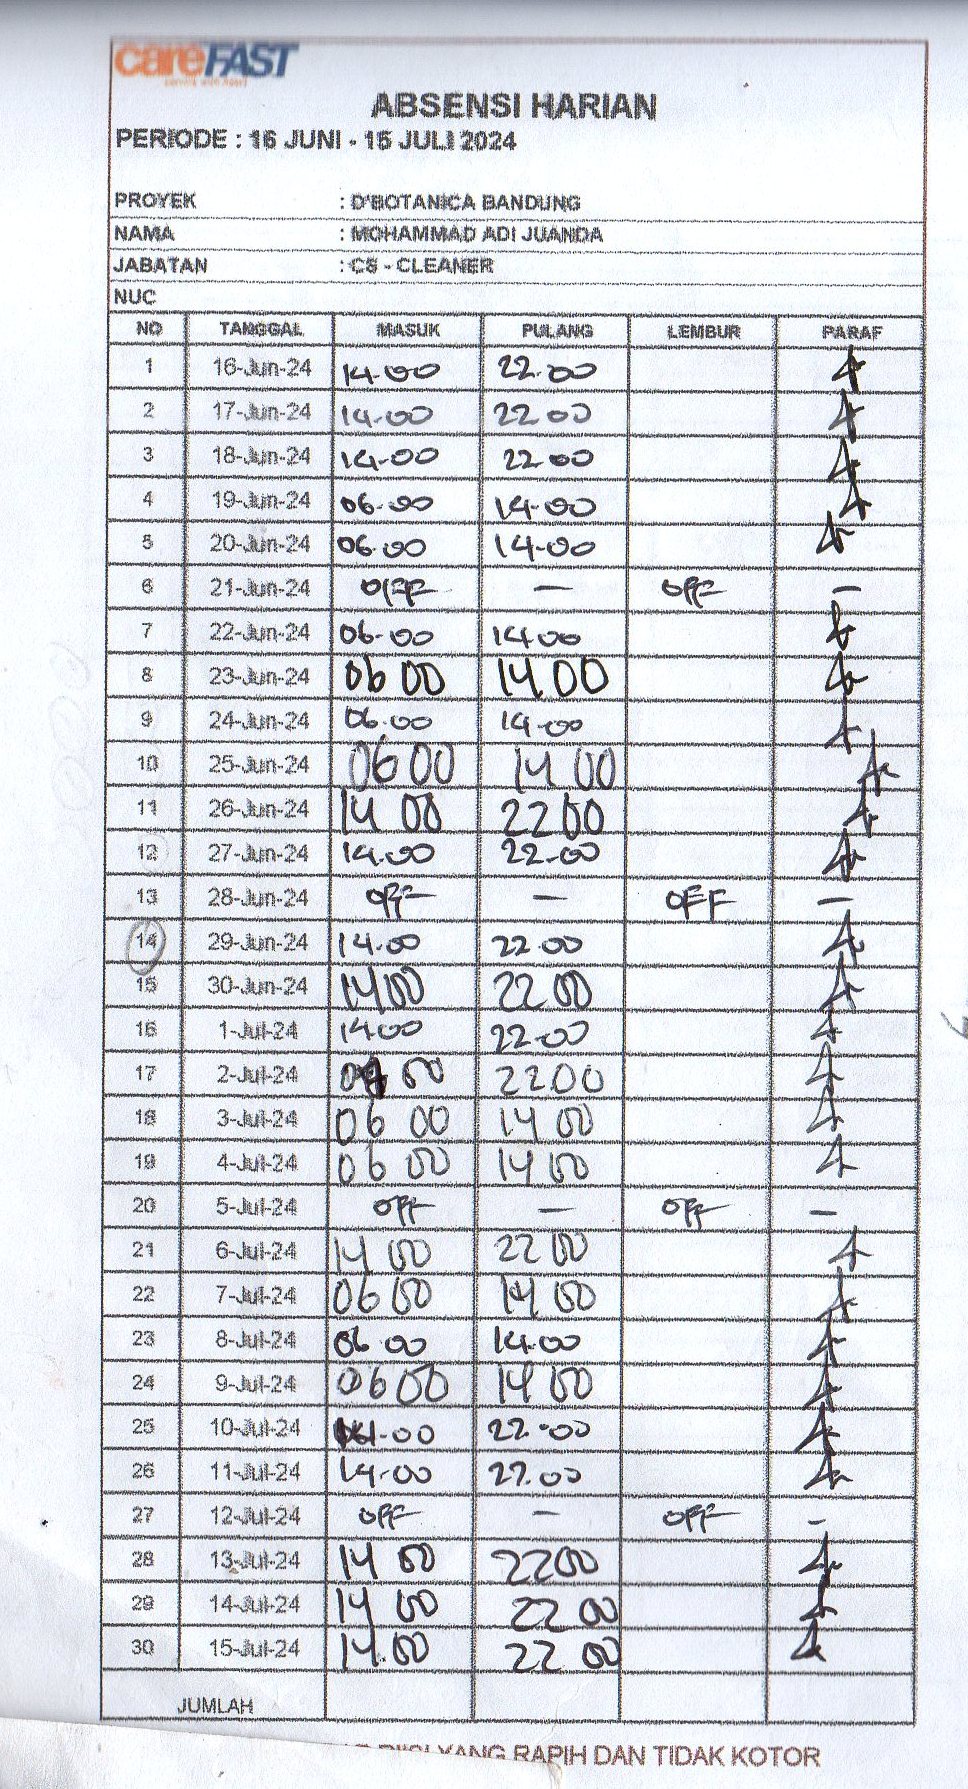 careFAST
ABSENSI HARIAN
PERIODE : 16 JUNI - 15 JULI 2024
PROYEK : D'BOTANICA BANDUNG
NAMA : MOHAMMAD ADI JUANDA
JABATAN : CS - CLEANER
NUC
NO TANGGAL MASUK PULANG LEMBUR PARAF
1 16-Jun-24 14.00 22.00
2 17-Jun-24 14.00 22.00
3 18-Jun-24 14.00 22.00
4 19-Jun-24 06.00 14.00
5 20-Jun-24 06.00 14.00
6 21-Jun-24 OFF — OFF —
7 22-Jun-24 06.00 14.00
8 23-Jun-24 06 00 14.00
9 24-Jun-24 06.00 14.00
10 25-Jun-24 06 00 14 00
11 26-Jun-24 14 00 22 00
12 27-Jun-24 14.00 22.00
13 28-Jun-24 OFF — OFF —
14 29-Jun-24 14.00 22.00
15 30-Jun-24 14 00 22 00
16 1-Jul-24 14.00 22.00
17 2-Jul-24 00 22 00
18 3-Jul-24 06 00 14 00
19 4-Jul-24 06 00 14 00
20 5-Jul-24 OFF — OFF —
21 6-Jul-24 14 00 22 00
22 7-Jul-24 06 00 14 00
23 8-Jul-24 06 00 14.00
24 9-Jul-24 06 00 14 00
25 10-Jul-24 .00 22.00
26 11-Jul-24 14.00 22.00
27 12-Jul-24 OFF — OFF —
28 13-Jul-24 14 00 22 00
29 14-Jul-24 14 00 22 00
30 15-Jul-24 14.00 22 00
JUMLAH
YANG RAPIH DAN TIDAK KOTOR